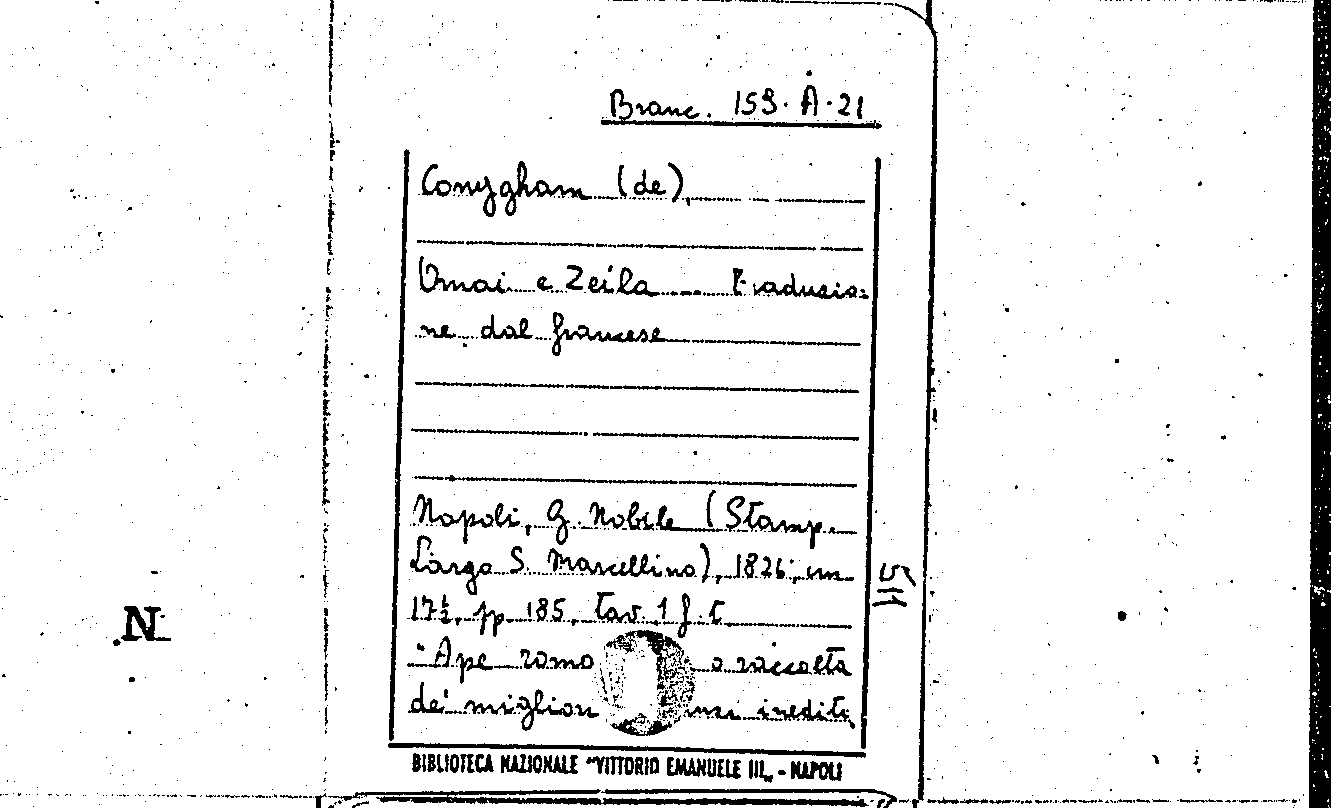 Branc. 159. A. 21
Conygham (de),
Omai e Zeila ... Traduzio-
ne dal francese
Napoli, G. Nobile (Stamp.
Largo S. Marcellino), 1826, in
17½, pp. 185, tav. 1 f. t.
"Ape roma o raccolta
dei migliori inediti,
BIBLIOTECA NAZIONALE "VITTORIO EMANUELE III„ - NAPOLI
511
N